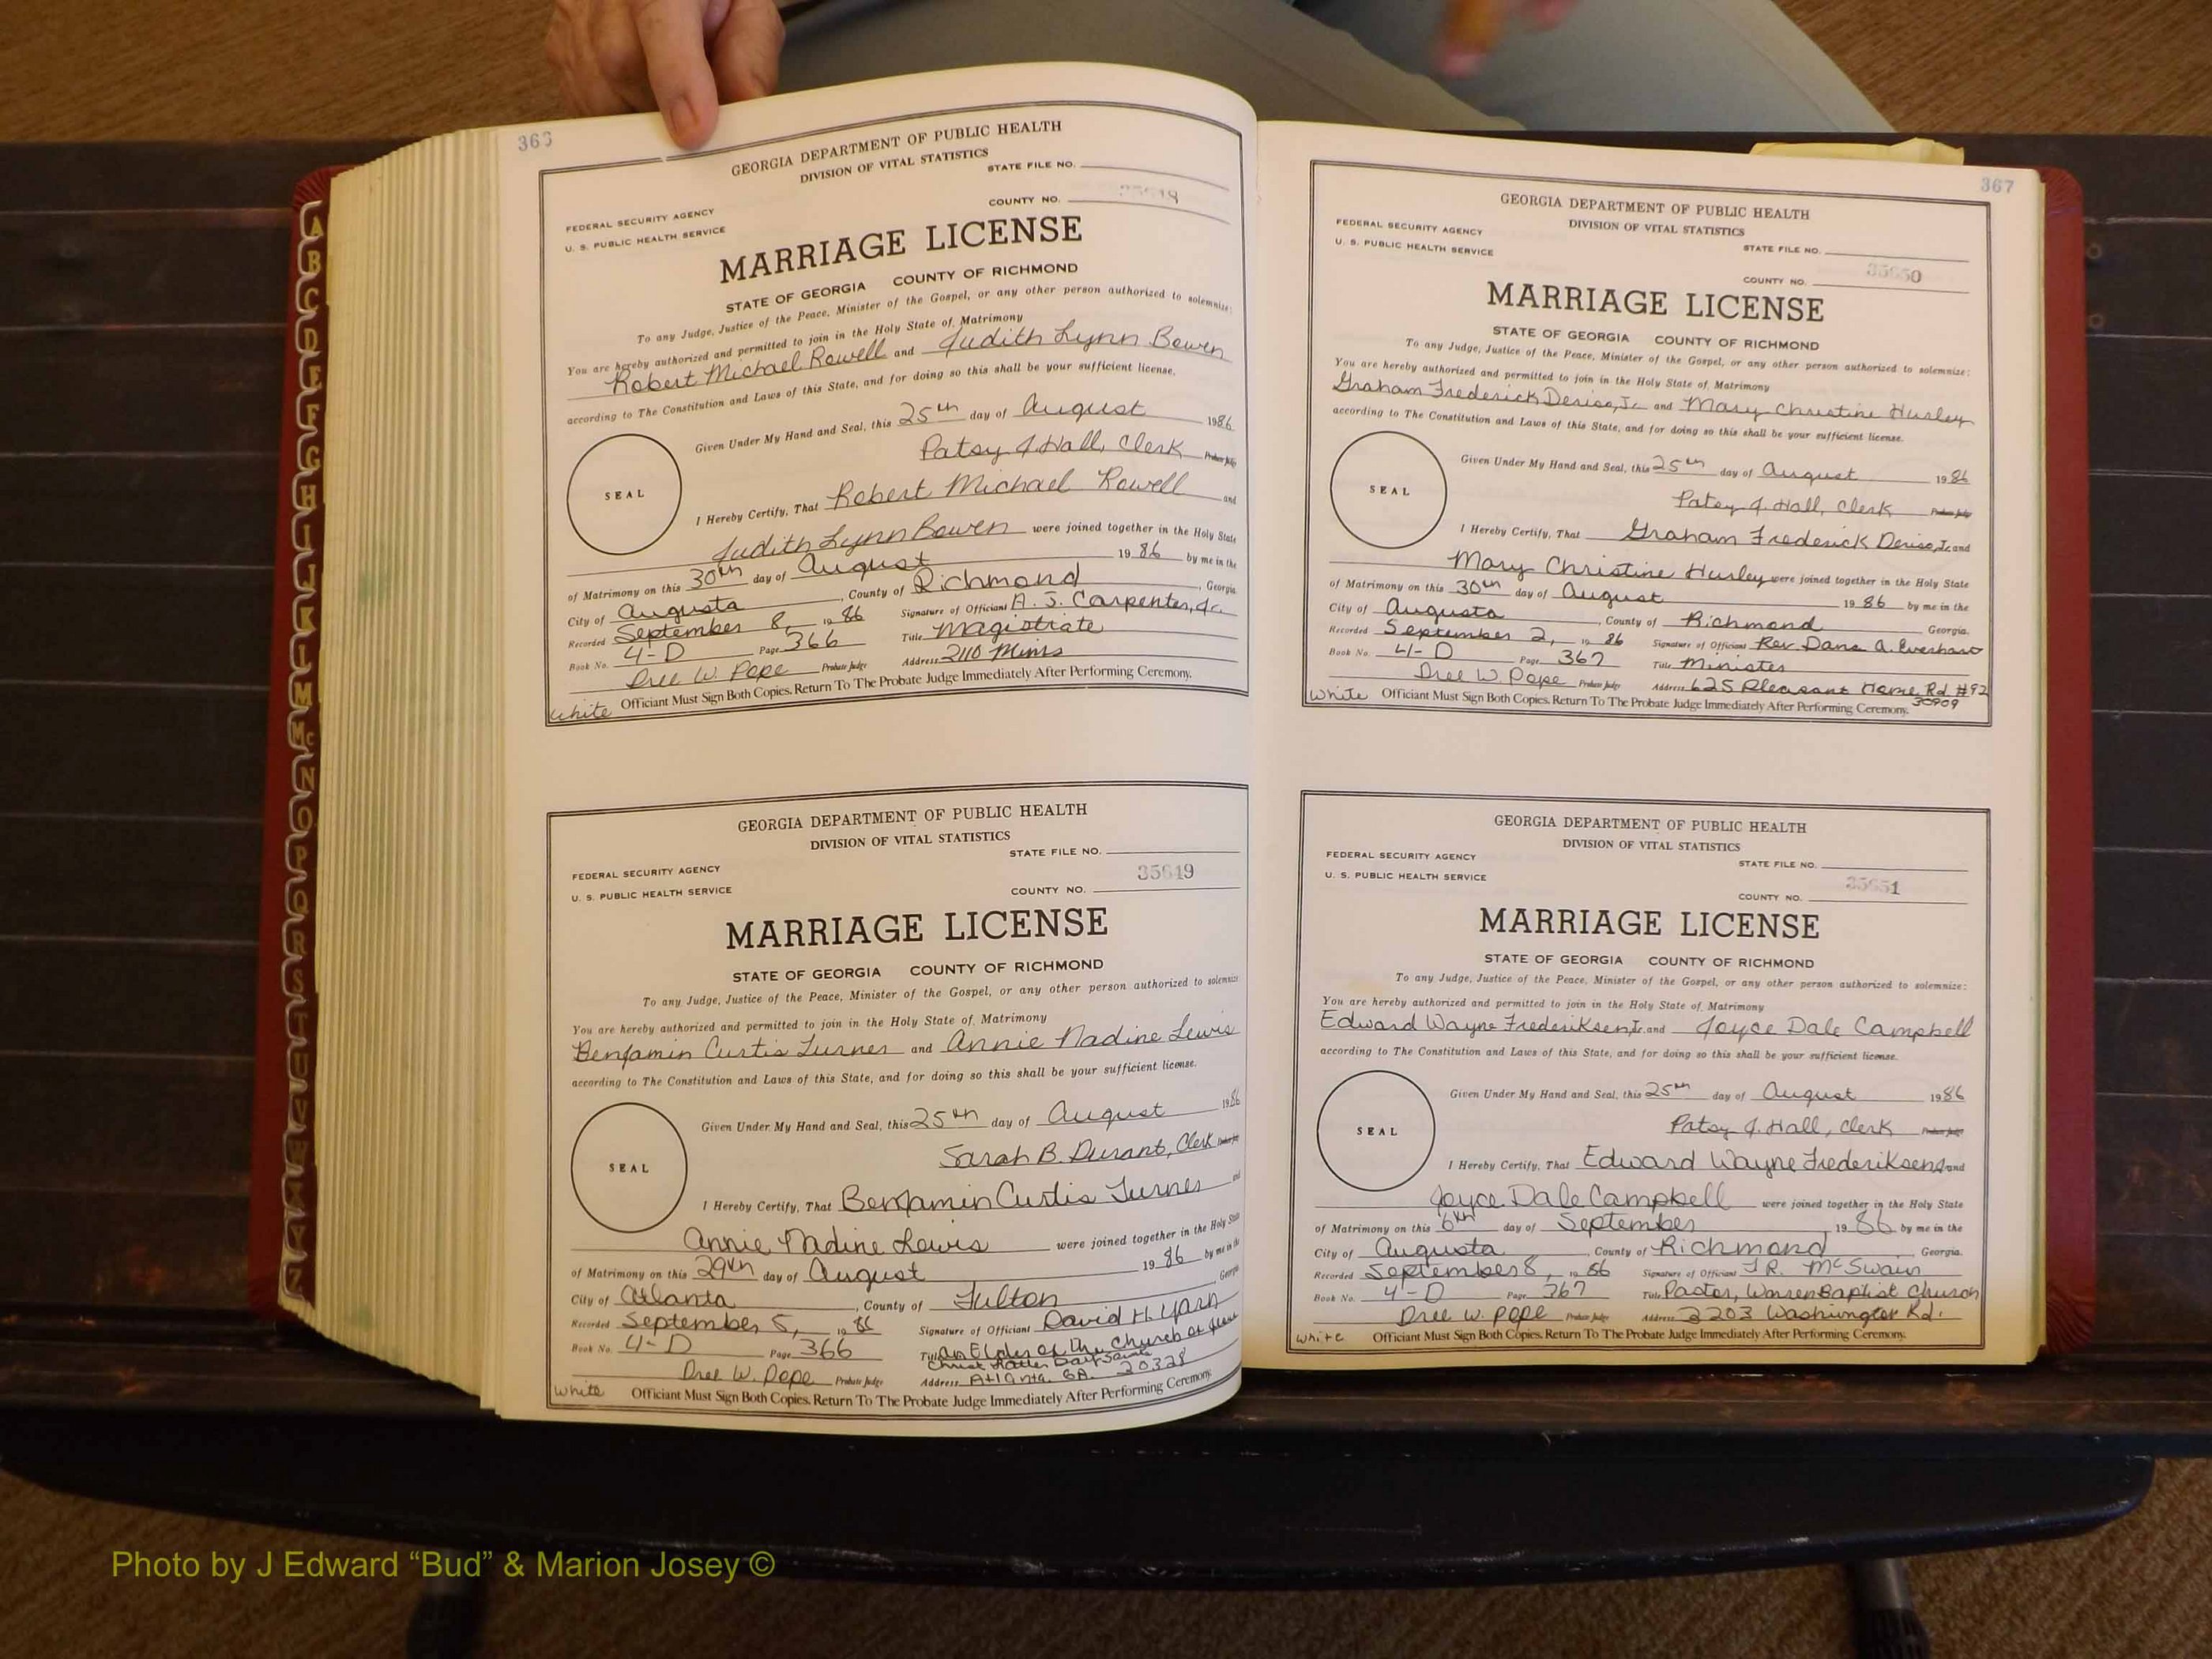 366
GEORGIA DEPARTMENT OF PUBLIC HEALTH
DIVISION OF VITAL STATISTICS
STATE FILE NO.
FEDERAL SECURITY AGENCY
COUNTY NO. 35648
U. S. PUBLIC HEALTH SERVICE
MARRIAGE LICENSE
STATE OF GEORGIA COUNTY OF RICHMOND
To any Judge, Justice of the Peace, Minister of the Gospel, or any other person authorized to solemnize:
You are hereby authorized and permitted to join in the Holy State of Matrimony
Robert Michael Rowell and Judith Lynn Bowen
according to The Constitution and Laws of this State, and for doing so this shall be your sufficient license.
Given Under My Hand and Seal, this 25th day of August 1986
Patsy J. Hall, Clerk Probate Judge
SEAL
I Hereby Certify, That Robert Michael Rowell and
Judith Lynn Bowen were joined together in the Holy State
of Matrimony on this 30th day of August 19 86 by me in the
City of Augusta, County of Richmond, Georgia
Recorded September 8, 19 86 Signature of Officiant A. J. Carpenter, Jr.
Book No. 4-D Page 366 Title Magistrate
Dree W. Pope Probate Judge Address 2110 Mims
White Officiant Must Sign Both Copies. Return To The Probate Judge Immediately After Performing Ceremony.
GEORGIA DEPARTMENT OF PUBLIC HEALTH
DIVISION OF VITAL STATISTICS
STATE FILE NO.
FEDERAL SECURITY AGENCY
COUNTY NO. 35649
U. S. PUBLIC HEALTH SERVICE
MARRIAGE LICENSE
STATE OF GEORGIA COUNTY OF RICHMOND
To any Judge, Justice of the Peace, Minister of the Gospel, or any other person authorized to solemnize
You are hereby authorized and permitted to join in the Holy State of Matrimony
Benjamin Curtis Turner and Annie Nadine Lewis
according to The Constitution and Laws of this State, and for doing so this shall be your sufficient license.
Given Under My Hand and Seal, this 25th day of August 1986
Sarah B. Durant, Clerk Probate Judge
SEAL
I Hereby Certify, That Benjamin Curtis Turner and
Annie Nadine Lewis were joined together in the Holy State
of Matrimony on this 29th day of August 19 86 by me in the
City of Atlanta, County of Fulton, Georgia
Recorded September 5, 19 86 Signature of Officiant David H. Yarn
Book No. 4-D Page 366 Title An Elder of The Church of Jesus
Christ Latter Day Saints
Dree W. Pope Probate Judge Address Atlanta, GA. 20328
White Officiant Must Sign Both Copies. Return To The Probate Judge Immediately After Performing Ceremony.
367
GEORGIA DEPARTMENT OF PUBLIC HEALTH
DIVISION OF VITAL STATISTICS
FEDERAL SECURITY AGENCY
STATE FILE NO.
U. S. PUBLIC HEALTH SERVICE
COUNTY NO. 35650
MARRIAGE LICENSE
STATE OF GEORGIA COUNTY OF RICHMOND
To any Judge, Justice of the Peace, Minister of the Gospel, or any other person authorized to solemnize:
You are hereby authorized and permitted to join in the Holy State of Matrimony
Graham Frederick Deriso, Jr. and Mary Christine Hurley
according to The Constitution and Laws of this State, and for doing so this shall be your sufficient license.
Given Under My Hand and Seal, this 25th day of August 1986
Patsy J. Hall, Clerk Probate Judge
SEAL
I Hereby Certify, That Graham Frederick Deriso, Jr. and
Mary Christine Hurley were joined together in the Holy State
of Matrimony on this 30th day of August 19 86 by me in the
City of Augusta, County of Richmond Georgia.
Recorded September 2, 19 86 Signature of Officiant Rev Dana A. Everhart
Book No. 4-D Page 367 Title Minister
Dree W. Pope Probate Judge Address 625 Pleasant Home Rd #92
30909
White Officiant Must Sign Both Copies. Return To The Probate Judge Immediately After Performing Ceremony.
GEORGIA DEPARTMENT OF PUBLIC HEALTH
DIVISION OF VITAL STATISTICS
FEDERAL SECURITY AGENCY
STATE FILE NO.
U. S. PUBLIC HEALTH SERVICE
COUNTY NO. 35651
MARRIAGE LICENSE
STATE OF GEORGIA COUNTY OF RICHMOND
To any Judge, Justice of the Peace, Minister of the Gospel, or any other person authorized to solemnize:
You are hereby authorized and permitted to join in the Holy State of Matrimony
Edward Wayne Frederiksen, Jr. and Joyce Dale Campbell
according to The Constitution and Laws of this State, and for doing so this shall be your sufficient license.
Given Under My Hand and Seal, this 25th day of August 1986
Patsy J. Hall, Clerk Probate Judge
SEAL
I Hereby Certify, That Edward Wayne Frederiksen and
Joyce Dale Campbell were joined together in the Holy State
of Matrimony on this 6th day of September, 19 86 by me in the
City of Augusta, County of Richmond Georgia.
Recorded September 8, 19 86 Signature of Officiant J R. McSwain
Book No. 4-D Page 367 Title Pastor, Warren Baptist Church
Dree W. Pope Probate Judge Address 3203 Washington Rd.
White Officiant Must Sign Both Copies. Return To The Probate Judge Immediately After Performing Ceremony.
A
B
C
D
E
F
G
H
I
J
K
L
M
Mc
N
O
P
Q
R
S
T
U
V
W
X
Y
Z
Photo by J Edward “Bud” & Marion Josey ©